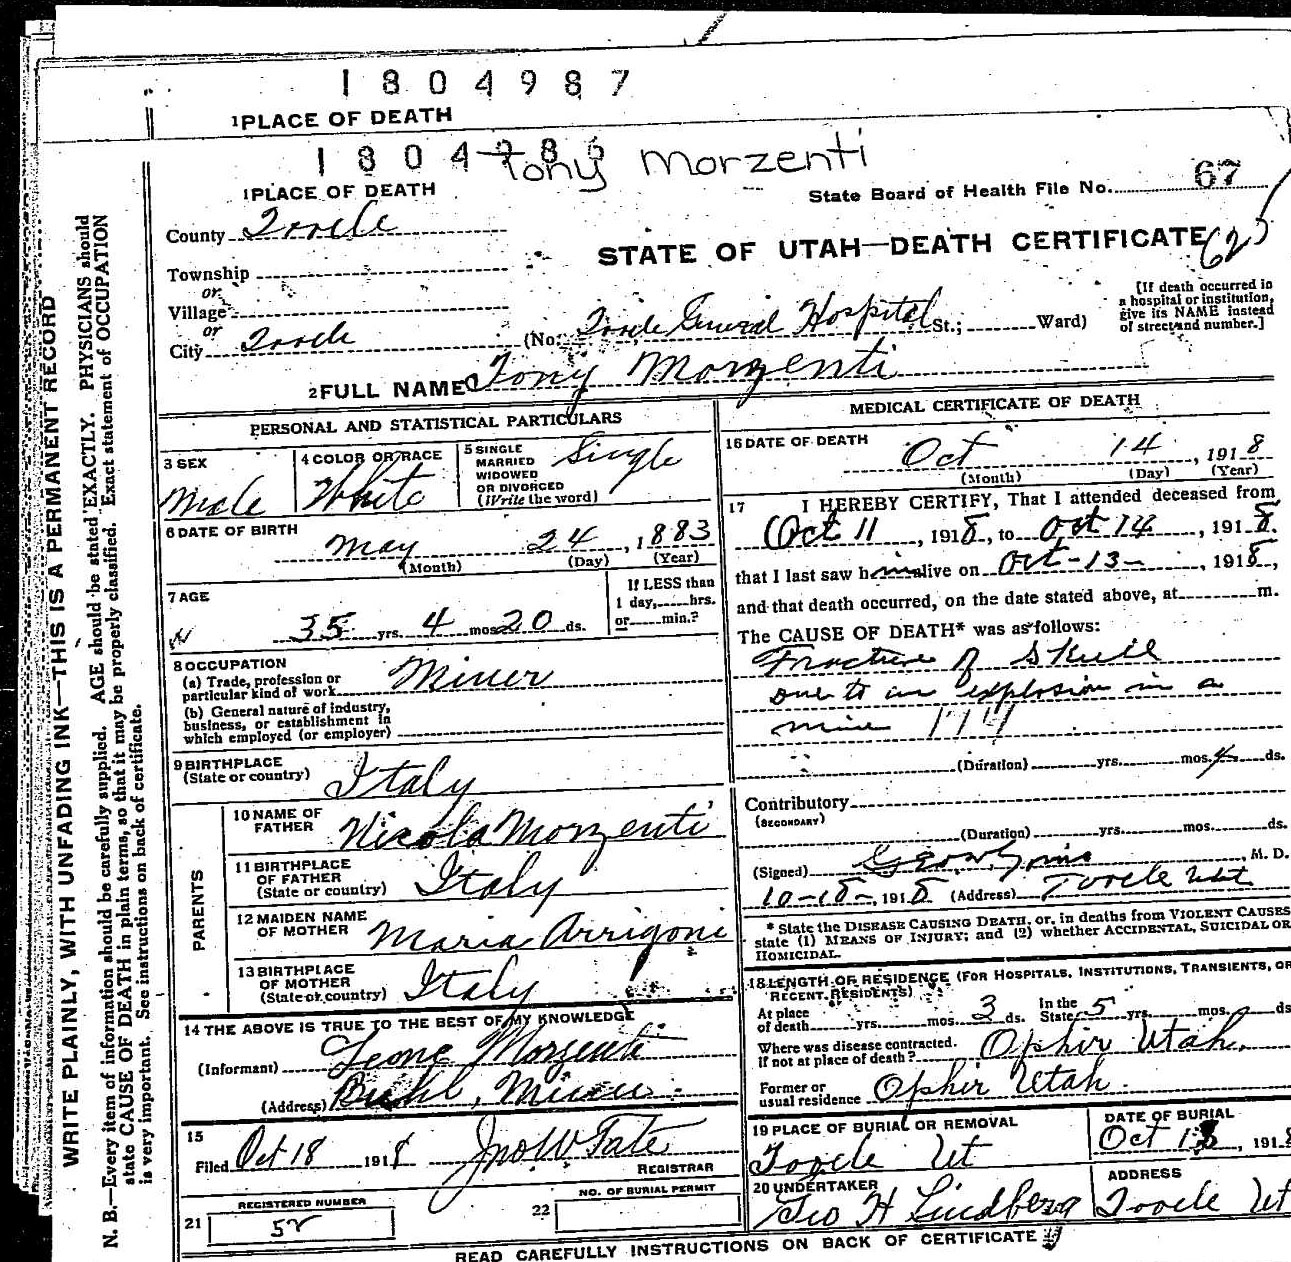 1804987
1 PLACE OF DEATH
Tony Morzenti
1 PLACE OF DEATH
State Board of Health File No. 67
County Tooele
STATE OF UTAH—DEATH CERTIFICATE
Township
or
Village
or
City Tooele
(No. Tooele General Hospital St.; Ward)
[If death occurred in
a hospital or institution,
give its NAME instead
of street and number.]
2 FULL NAME Tony Morzenti
PERSONAL AND STATISTICAL PARTICULARS
3 SEX
Male
4 COLOR OR RACE
White
5 SINGLE
MARRIED
WIDOWED
OR DIVORCED
(Write the word)
Single
6 DATE OF BIRTH
May 24, 1883
(Month) (Day) (Year)
7 AGE
35 yrs. 4 mos. 20 ds.
If LESS than
1 day, hrs.
or min.?
8 OCCUPATION
(a) Trade, profession or
particular kind of work Miner
(b) General nature of industry,
business, or establishment in
which employed (or employer)
9 BIRTHPLACE
(State or country) Italy
PARENTS
10 NAME OF
FATHER Nicola Morzenti
11 BIRTHPLACE
OF FATHER
(State or country) Italy
12 MAIDEN NAME
OF MOTHER Maria Arrigoni
13 BIRTHPLACE
OF MOTHER
(State or country) Italy
14 THE ABOVE IS TRUE TO THE BEST OF MY KNOWLEDGE
(Informant) Leone Morzenti
(Address) Buhl, Minn
15
Filed Oct 18 1918 Jno W Tate
REGISTRAR
REGISTERED NUMBER
21 52
NO. OF BURIAL PERMIT
22
MEDICAL CERTIFICATE OF DEATH
16 DATE OF DEATH
Oct 14, 1918
(Month) (Day) (Year)
17 I HEREBY CERTIFY, That I attended deceased from
Oct 11, 1918, to Oct 14, 1918.
that I last saw him alive on Oct-13-, 1918,
and that death occurred, on the date stated above, at m.
The CAUSE OF DEATH* was as follows:
Fracture of Skull
due to an explosion in a
mine
(Duration) yrs. mos. 4 ds.
Contributory
(SECONDARY)
(Duration) yrs. mos. ds.
(Signed) M. D.
10-18-, 1918 (Address) Tooele Ut
* State the DISEASE CAUSING DEATH, or, in deaths from VIOLENT CAUSES
state (1) MEANS OF INJURY; and (2) whether ACCIDENTAL, SUICIDAL OR
HOMICIDAL.
18 LENGTH OF RESIDENCE (FOR HOSPITALS, INSTITUTIONS, TRANSIENTS, OR
RECENT RESIDENTS)
At place
of death yrs. mos. 3 ds. In the
State 5 yrs. mos. ds
Where was disease contracted.
If not at place of death? Ophir Utah.
Former or
usual residence Ophir Utah
19 PLACE OF BURIAL OR REMOVAL
Tooele Ut
DATE OF BURIAL
Oct 18, 1918
20 UNDERTAKER
Geo H Lindberg
ADDRESS
Tooele Ut
READ CAREFULLY INSTRUCTIONS ON BACK OF CERTIFICATE
WRITE PLAINLY, WITH UNFADING INK—THIS IS A PERMANENT RECORD
N. B.—Every item of information should be carefully supplied. AGE should be stated EXACTLY. PHYSICIANS should
state CAUSE OF DEATH in plain terms, so that it may be properly classified. Exact statement of OCCUPATION
is very important. See instructions on back of certificate.